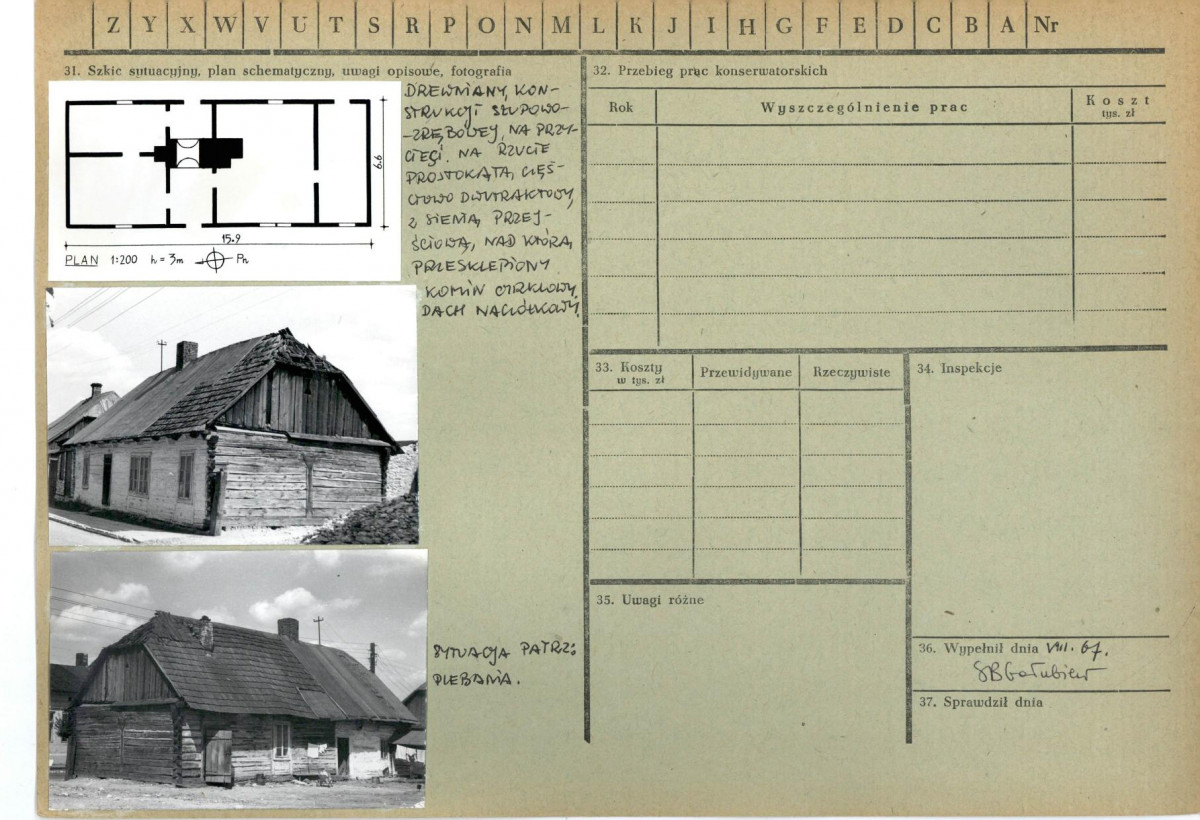 Z Y X W V U T S R P O N M L K J I H G F E D C B A Nr
31. Szkic sytuacyjny, plan schematyczny, uwagi opisowe, fotografia
6.6
15.9
PLAN 1:200 h = 3m Pn
DREWNIANY, KON-
STRUKCJI SŁUPOWO-
-ZRĘBOWEJ, NA PRZY-
CIESI. NA RZUCIE
PROSTOKĄTA, CZĘŚ-
CIOWO DWUTRAKTOWY,
Z SIENIĄ PRZEJ-
ŚCIOWĄ, NAD KTÓRĄ
PRZESKLEPIONY
KOMIN CYRKLOWY.
DACH NACIÓŁKOWY.
SYTUACJA PATRZ:
PLEBANIA.
32. Przebieg prac konserwatorskich
Rok
Wyszczególnienie prac
Koszt
tys. zł
33. Koszty
w tys. zł
Przewidywane
Rzeczywiste
34. Inspekcje
35. Uwagi różne
36. Wypełnił dnia VIII. 67.
37. Sprawdził dnia